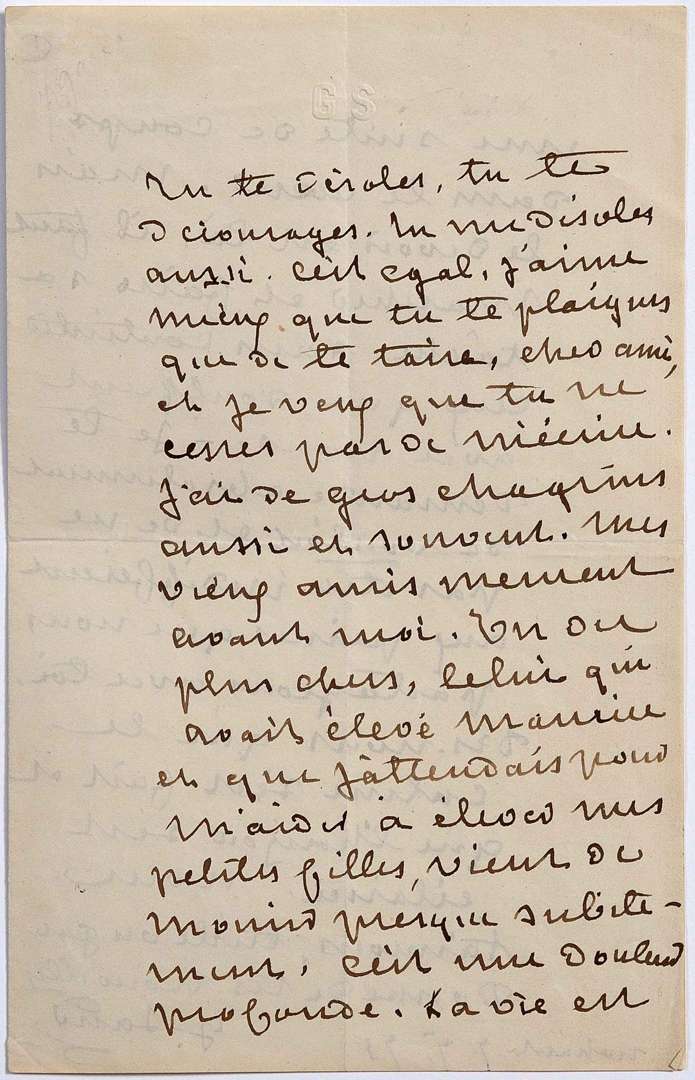 GS
Tu te désoles, tu te
décourages. Tu me désoles
aussi. c'est egal, j'aime
mieux que tu te plaignes
que de te taire, cher ami,
et je veux que tu ne
cesses pas de m'écrire.
J'ai de gros chagrins
aussi et souvent. Mes
vieux amis meurent
avant moi. Un des
plus chers, celui qui
avait élevé Maurice
et que j'attendais pour
m'aider à élever mes
petites filles, vient de
mourir presque subite-
ment. c'est une douleur
profonde. La vie est